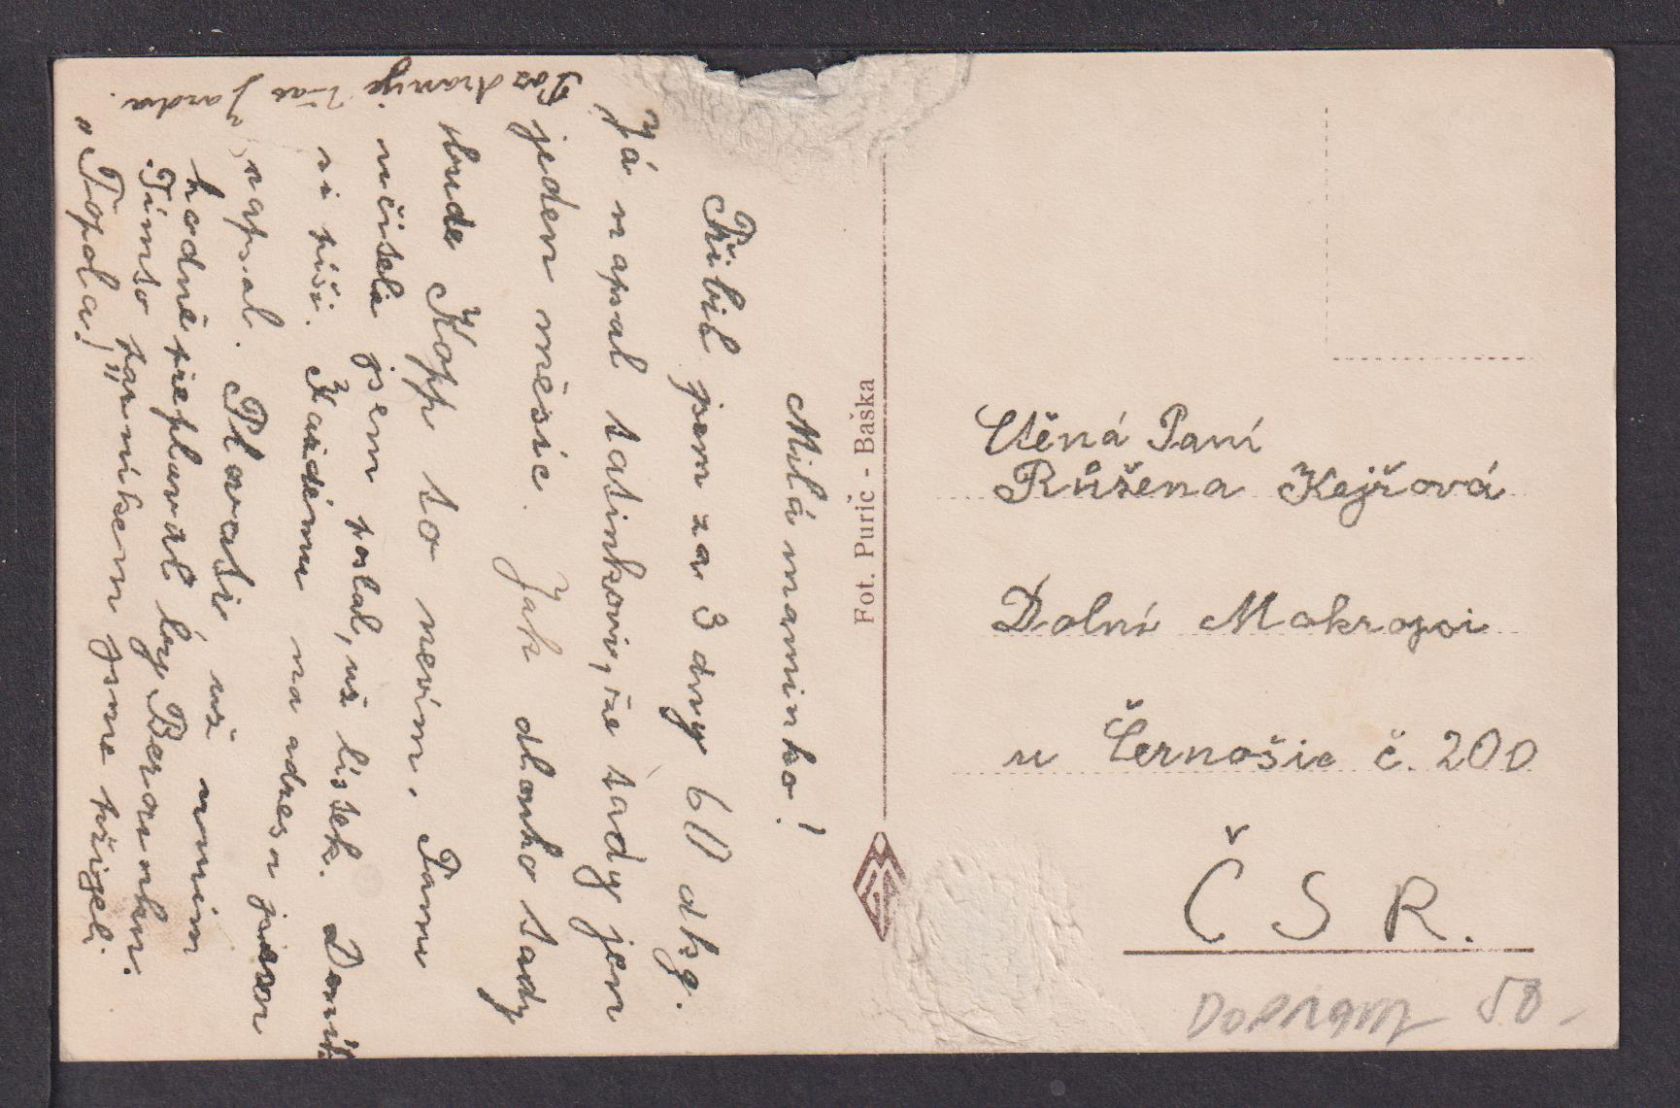 Milá maminko!
Přibil jsem za 3 dny 60 dkg.
Já napsal tatinkovi, že tady jen
jeden měsíc. Jak dlouho tady
bude Kopp to nevím. Pamu
učiteli jsem poslal, už lístek. Domů
si píši. Každému na adresu jsem
napsal. Plovati už umím
hodně přeplaval bych Berounku.
Tímto parníkem jsme přijeli.
"Topola!"
Pozdravuje Vás Jarda.
Fot. Purič - Baška
Ctěná Paní
Růšena Kejřová
Dolní Mokropsi
u Černošic č. 200
ČSR.
DOPRAVA 50-